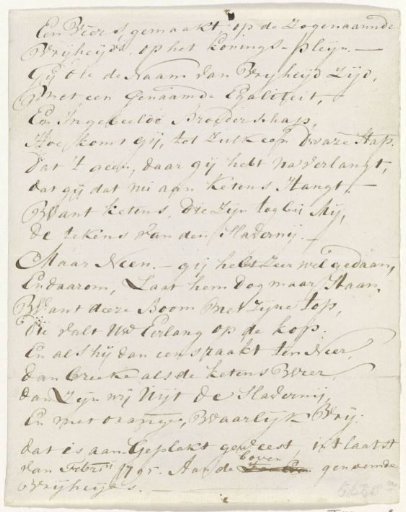 Een Vers, gemaakt op de Zogenaamde
Vrijheijd op het Konings-pleijn —
Gij die de Naam van Vrijheijd Zijd,
Met een Genaamde Egaliteit,
En Ingebeelde Broederschap,
Hoe komt gij, tot Zulk een dwaze Stap.
dat 't geen, daar gij hebt na verlangt,
dat gij dat nu aan Ketens Hangt —
Want Ketens, die Zijn tog bij Mij,
de tekens van den Slavernij —
Maar Neen — gij hebt Zeer wel gedaan,
En daarom, Laat hem dog maar Staan,
Want deeze Boom met Zijne top,
Die valt Uw Eerlang op de kop.
En als hij dan eens raakt ter Neer,
dan breeke als de Ketens Weer
dan Zijn wij Uijt de Slavernij,
En met orange, Waarlijk Vrij.
dat is aan Geplakt geweest, in't laatst
van Febri 1795. Aan de boven genoemde
Vrijheijds —